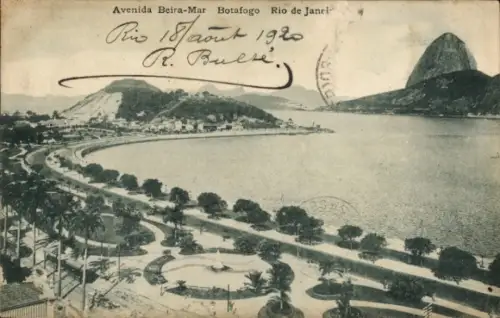 Avenida Beira-Mar Botafogo Rio de Janri
Rio 18/août 1920
R. Bulsé.